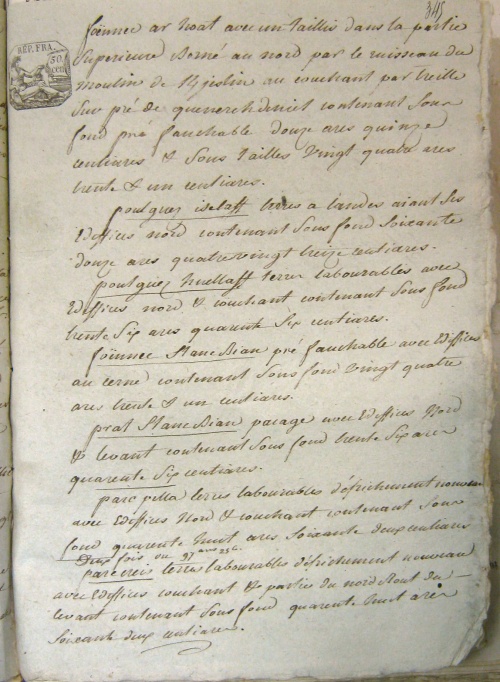 345
RÉP. FRA.
50
foënnec ar hoat avec un taillis dans la partie
Superieure Borné au nord par le ruisseau du
moulin de St jostin au couchant par treille
Sur pré de quenerch deniel contenant Sous
fond pré fauchable douze ares quinze
centiares & Sous tailles vingt quatre ares
trente & un centiares.
poulguez iselaff terres a landes aiant Ses
Edifices nord contenant Sous fond Soixante
douze ares quatrevingt treize centiares.
poulguez huellaff terre labourables avec
Edifices nord & couchant contenant Sous fond
trente Six ares quarente Six centiares.
foënnec Stanc Bian pré fauchable avec Edifices
au cerne contenant Sous fond vingt quatre
ares trente & un centiares.
prat Stanc Bian pacage avec Edifices Nord
& levant contenant Sous fond trente Six ares
quarente Six centiares.
parc pella terres labourables défrichement nouveau
avec Edifices Nord & couchant contenant Sous
fond quarente huit ares Soixante deux centiares
Deux fois ou 97 ares 25 c.
parc creis terres labourables défrichement nouveau
avec Edifices couchant & partie du nord Bout du
levant contenant Sous fond quarente huit ares
Soixante deux centiares.